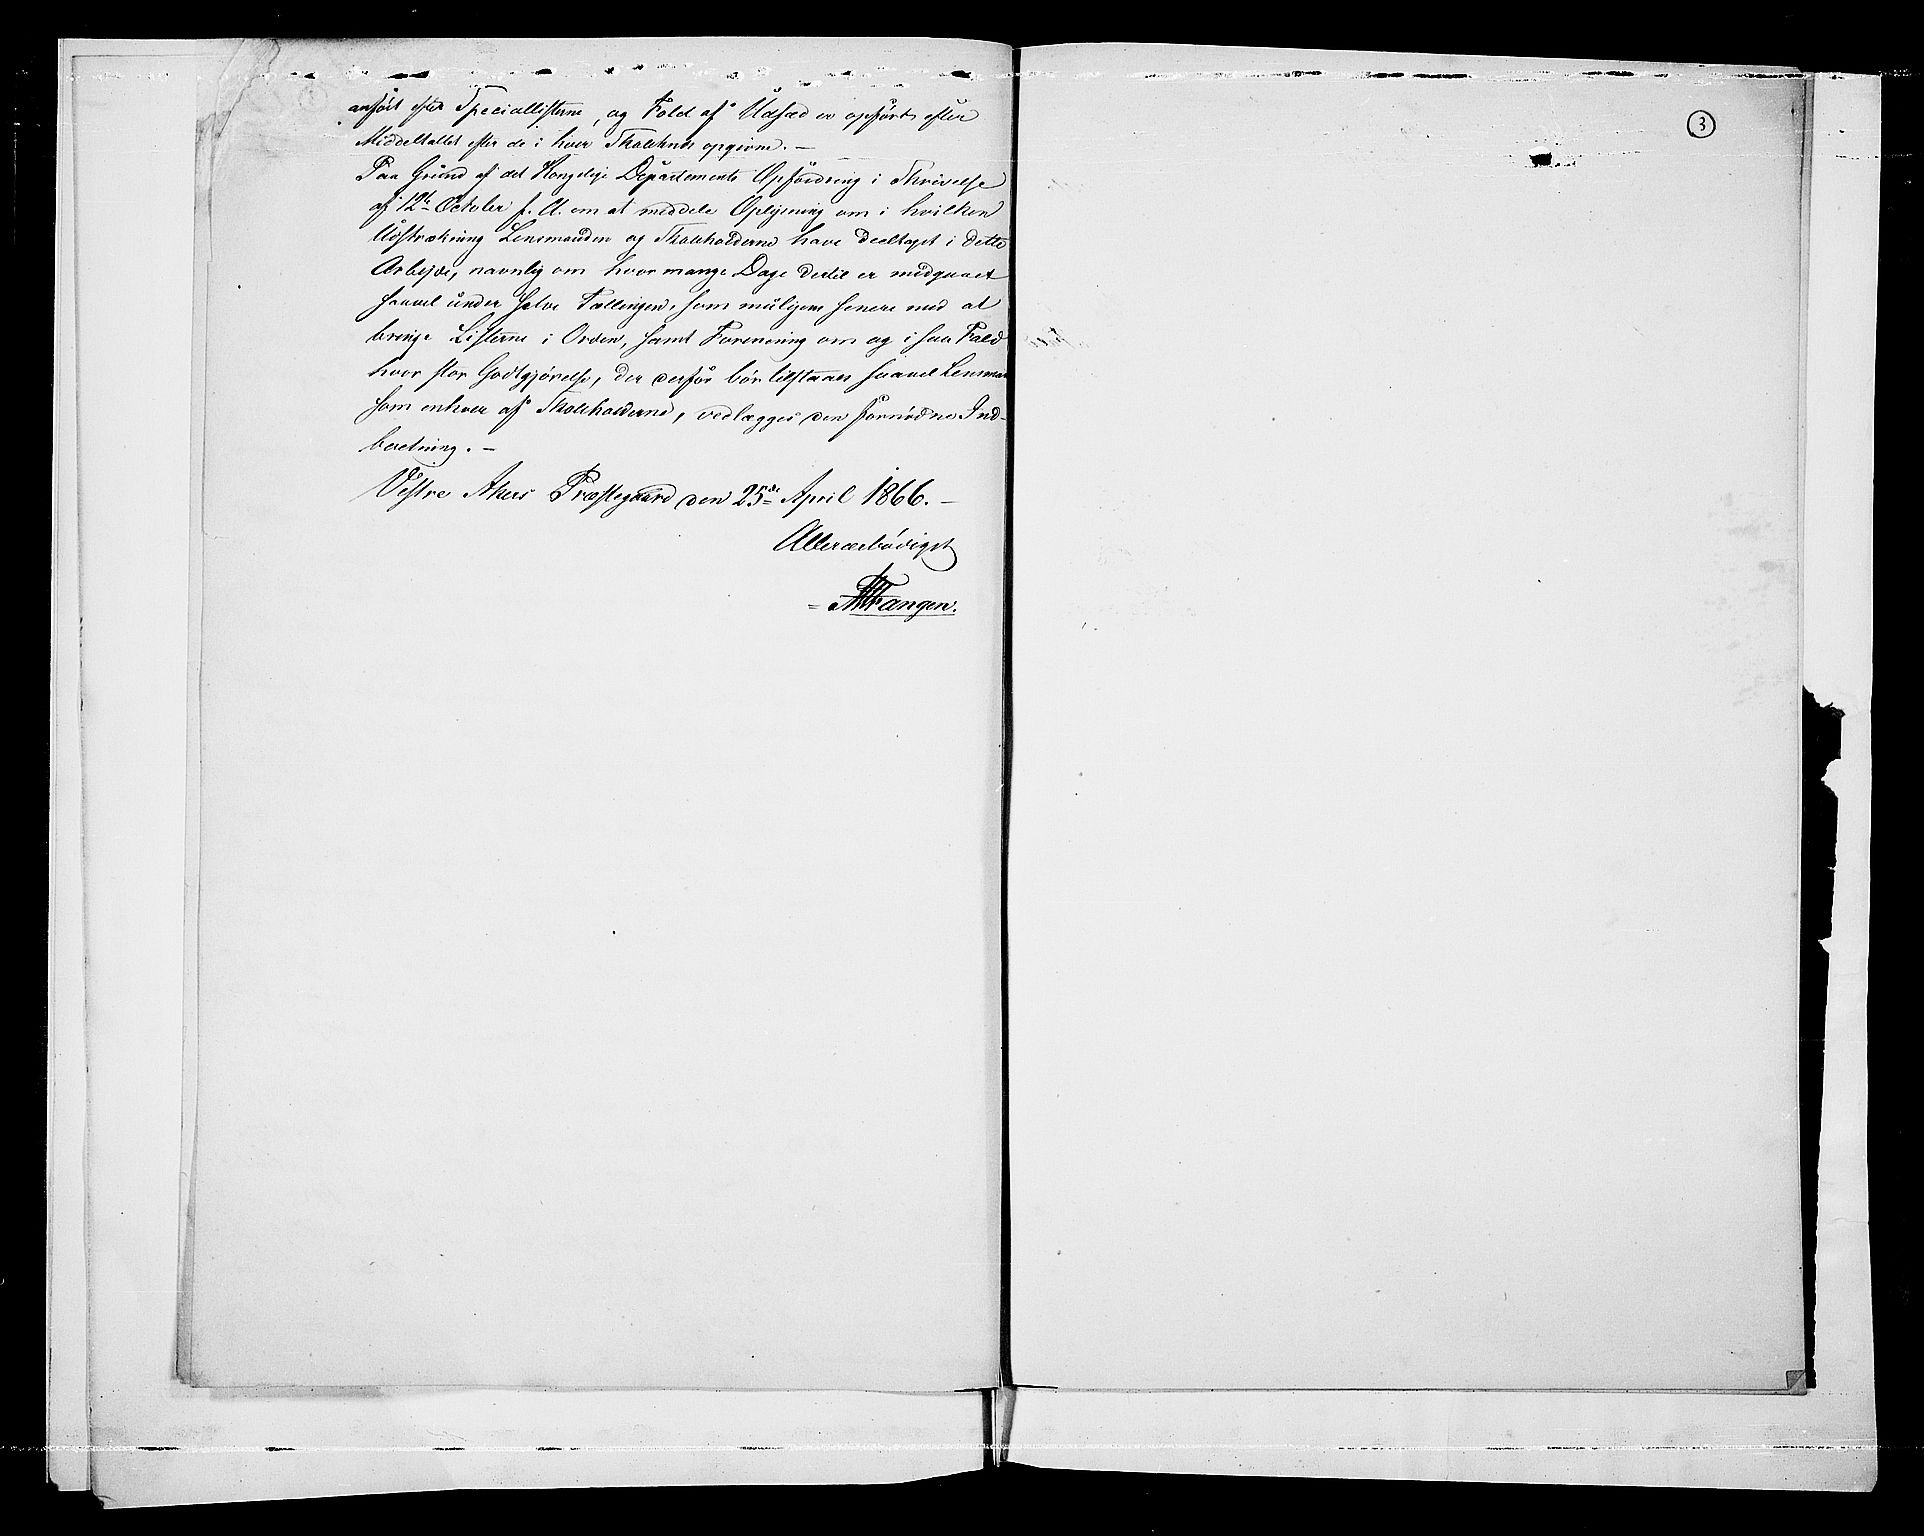 anført efter Speciallisterne, og Fold af Udsæd er opført efter
Middeltallet efter de i hver Skolekreds opgivne. —
Paa Grund af det Kongelige Departements Opfordring i Skrivelse
af 12te October f. A. om at meddele Oplysning om i hvilken
Udstrækning Lensmanden og Skoleholderne have deeltaget i dette
Arbejde, navnlig om hvor mange Dage dertil er medgaaet
saavel under selve Tællingen, som muligens senere med at
bringe Listerne i Orden, samt Formening om og i saa Fald
hvor stor Godtgjørelse, der derfor bør tilstaaes saavel Lensman
som enhver af Skoleholderne, vedlægges den fornødne Ind-
beretning. —
Vestre Akers Præstegaard den 25de April 1866. —
Allerærbødigst
Fangen.
3